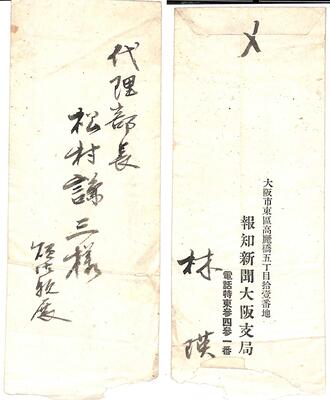 代理部長
松村謙三様
大阪市東區高麗橋五丁目拾壹番地
報知新聞大阪支局
電話特東参四参一番
林 瑛